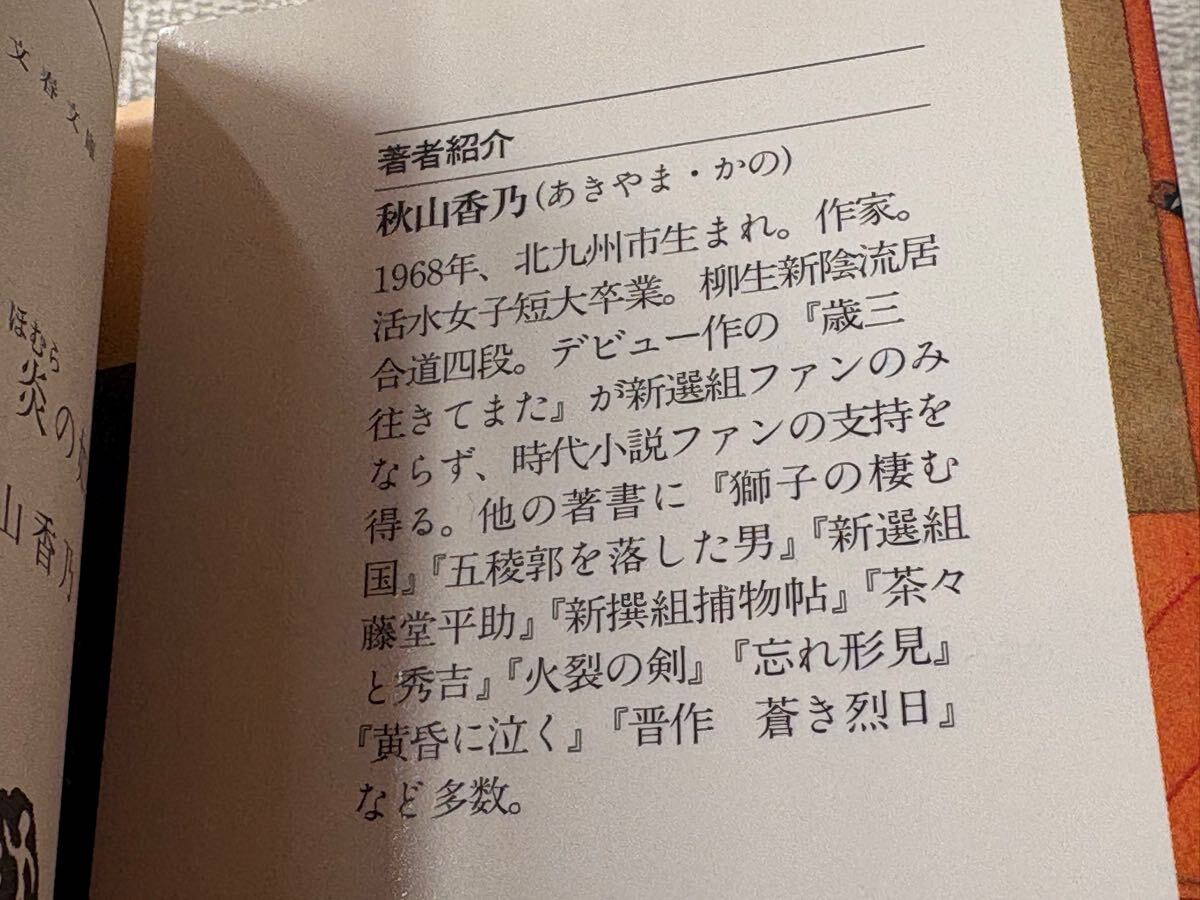 著者紹介
秋山香乃(あきやま・かの)
1968年、北九州市生まれ。作家。
活水女子短大卒業。柳生新陰流居
合道四段。デビュー作の『歳三
往きてまた』が新選組ファンのみ
ならず、時代小説ファンの支持を
得る。他の著書に『獅子の棲む
国』『五稜郭を落した男』『新選組
藤堂平助』『新撰組捕物帖』『茶々
と秀吉』『火裂の剣』『忘れ形見』
『黄昏に泣く』『晋作　蒼き烈日』
など多数。
文春文庫
ほむら
炎の
山香乃